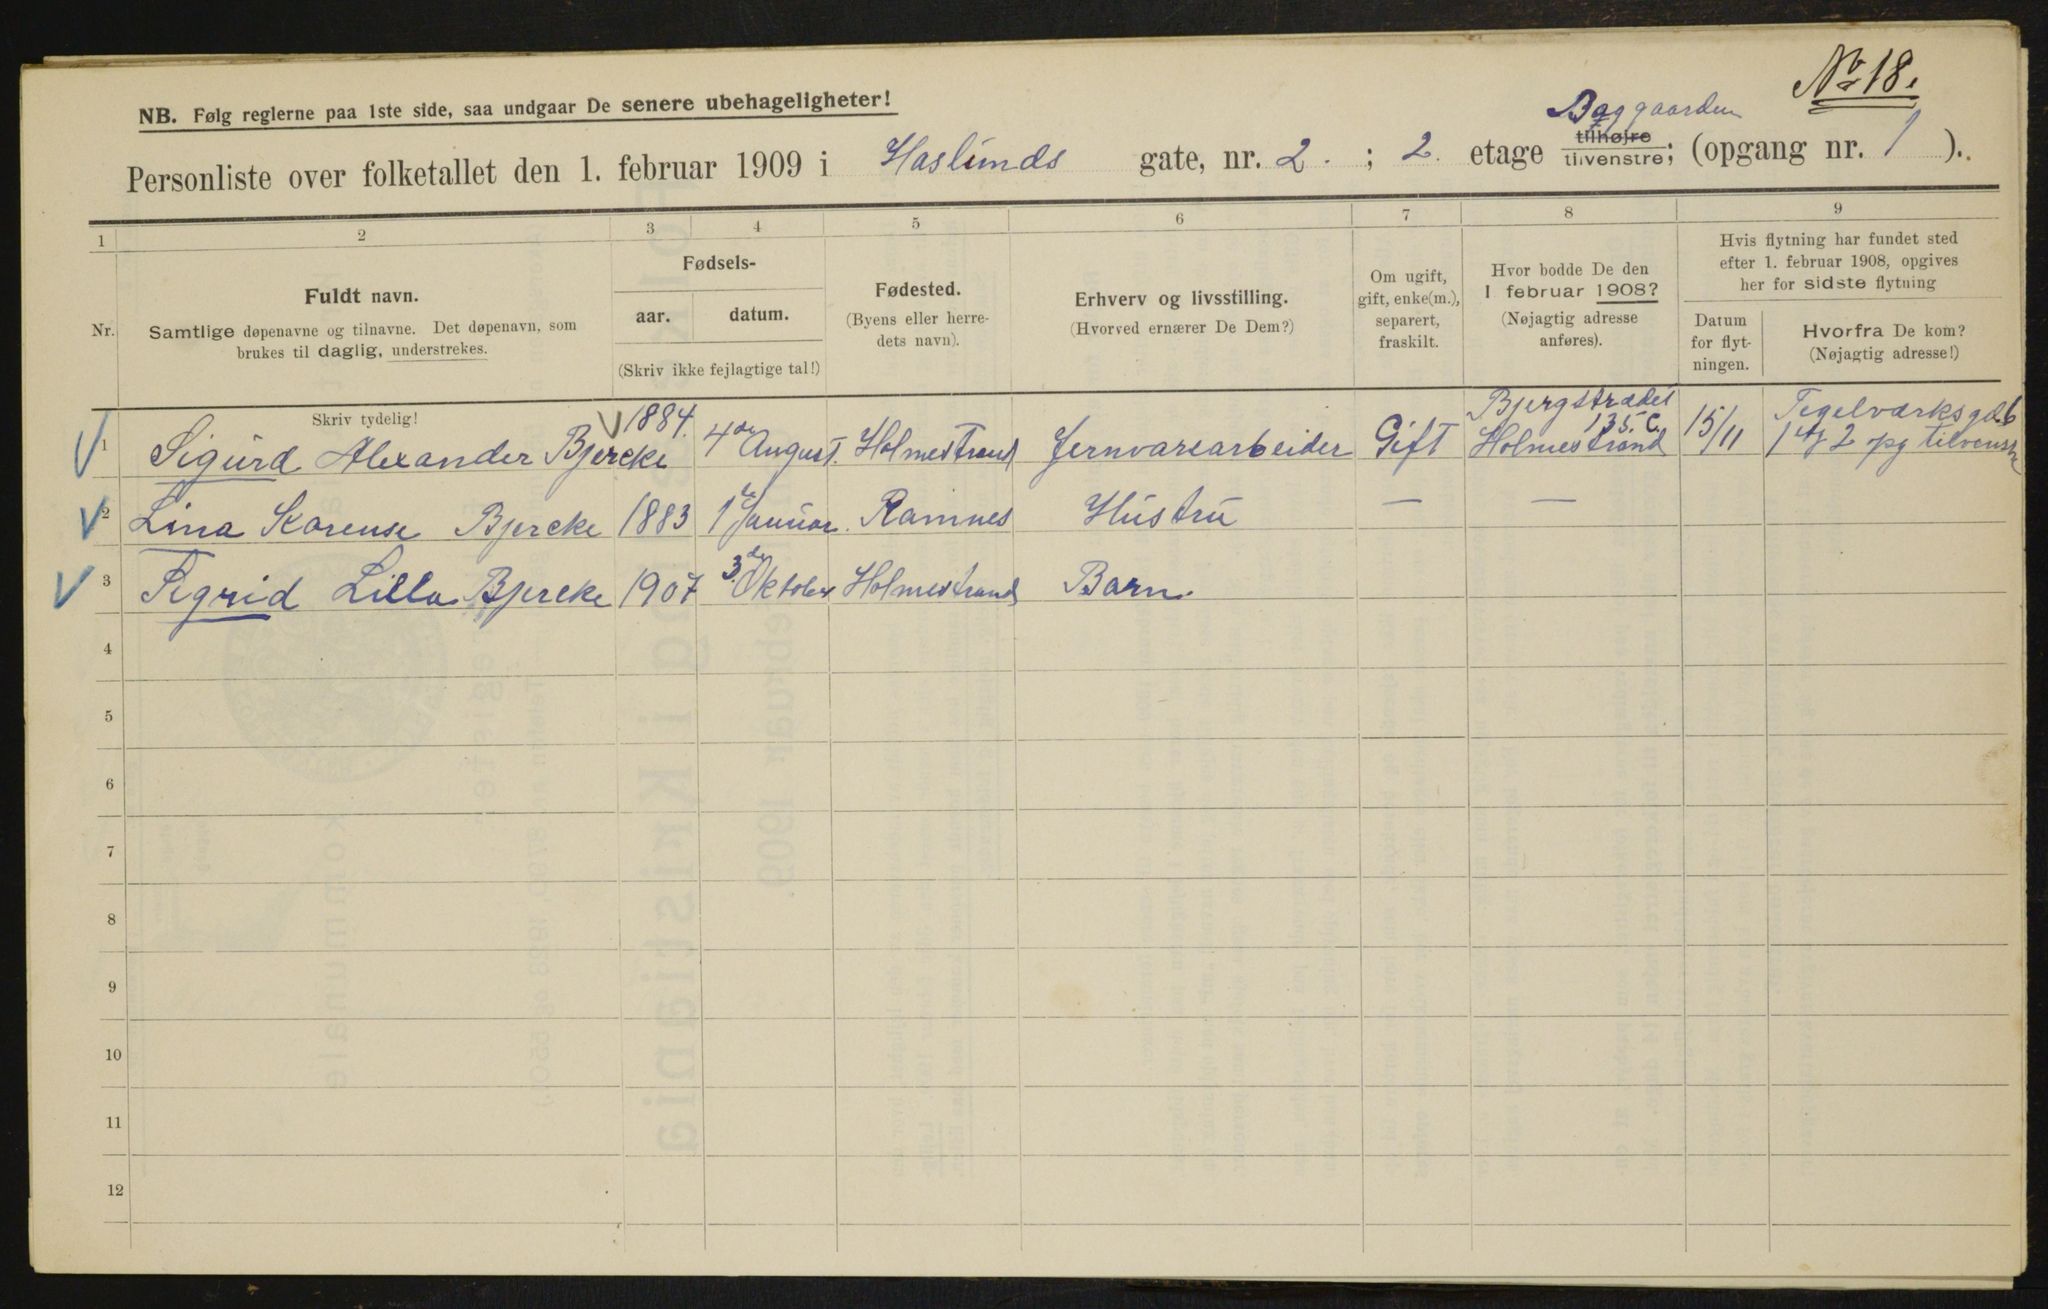 No 18.
NB. Følg reglerne paa 1ste side, saa undgaar De senere ubehageligheter!
Baggaarden
Personliste over folketallet den 1. februar 1909 i Haslunds gate, nr. 2. ; 2. etage tilhøjre tilvenstre; (opgang nr. 1 ).
1 2 3 4 5 6 7 8 9
Nr.
Fuldt navn.
Samtlige døpenavne og tilnavne. Det døpenavn, som
brukes til daglig, understrekes.
Skriv tydelig!
Fødsels-
aar. datum.
(Skriv ikke fejlagtige tal!)
Fødested.
(Byens eller herre-
dets navn).
Erhverv og livsstilling.
(Hvorved ernærer De Dem?)
Om ugift,
gift, enke(m.),
separert,
fraskilt.
Hvor bodde De den
1 februar 1908?
(Nøjagtig adresse
anføres).
Hvis flytning har fundet sted
efter 1. februar 1908, opgives
her for sidste flytning
Datum
for flyt-
ningen.
Hvorfra De kom?
(Nøjagtig adresse!)
1 Sigurd Alexander Bjercke 1884. 4de August. Holmestrand Jernvarearbeider Gift Bjergstrædet 135.C. Holmestrand 15/11 Tegelværksgd. 6 2 opg tilvenstre
2 Lina Karense Bjercke 1883 1 Januar. Ramnes Hustru — —
3 Sigrid Lilla Bjercke 1907 3de Oktober Holmestrand Barn.
4
5
6
7
8
9
10
11
12